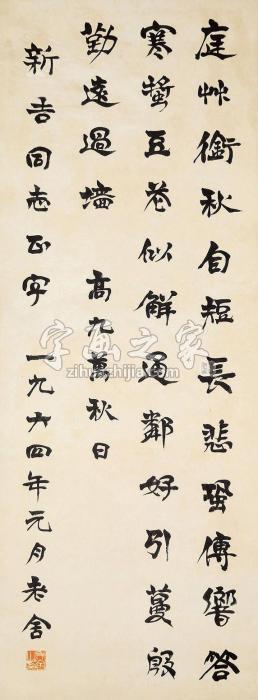 庭艸銜秋自短長悲蛩傳響答
寒螿豆花似解通鄰好引蔓殷
勤遠過墻 高九萬秋日
新吾同志正字 一九六四年元月老舍
字画之家
zihuazhijia.com